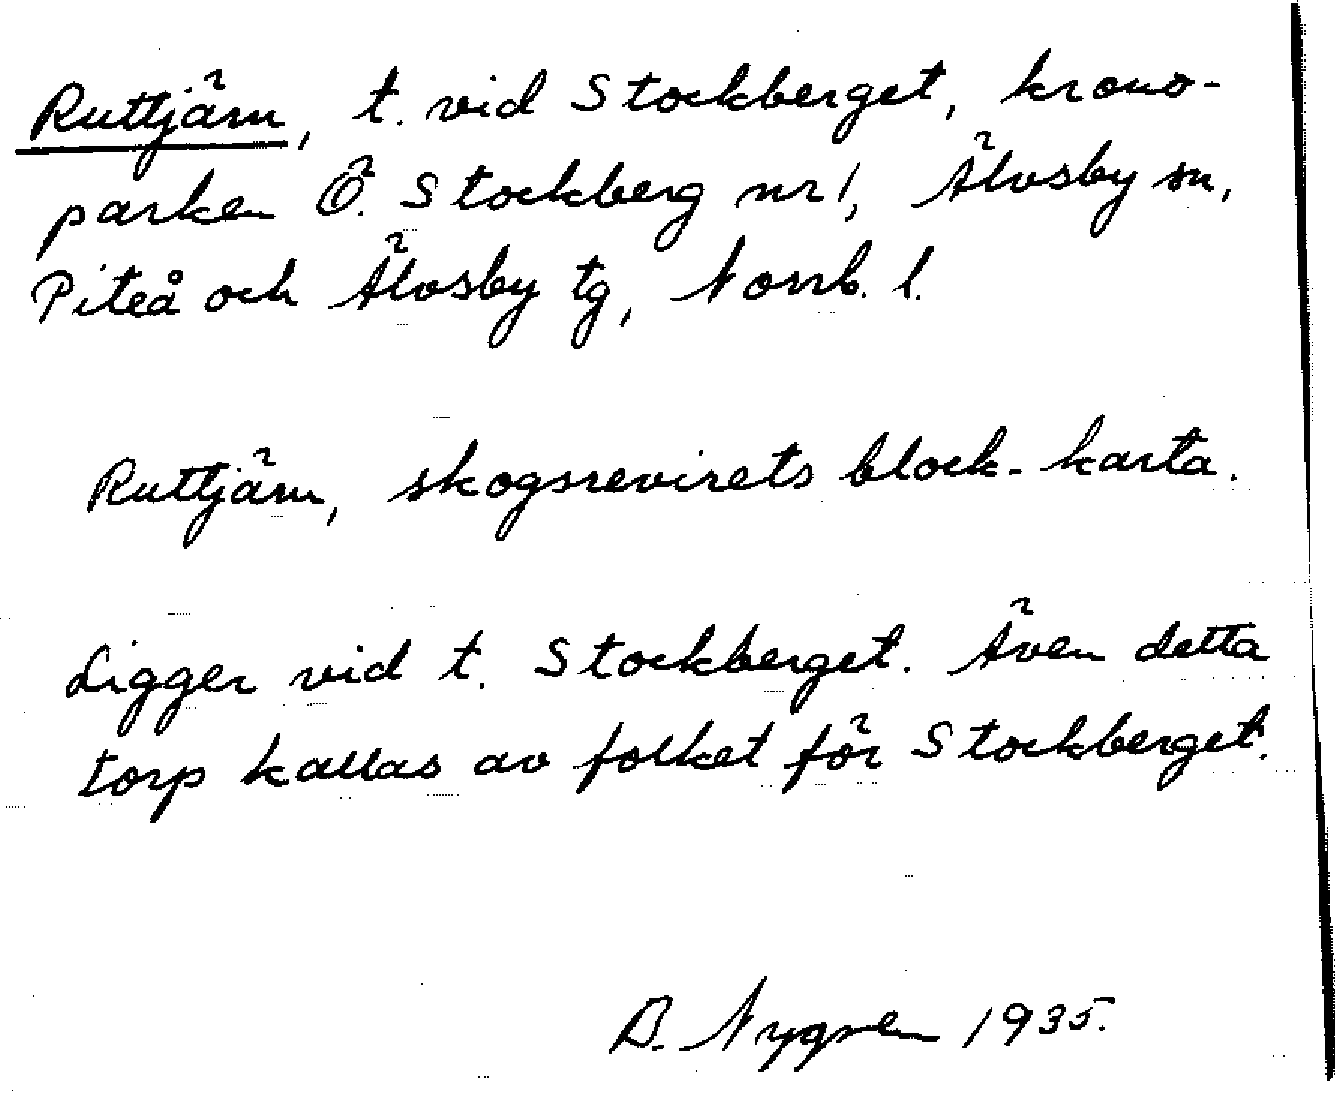 Ruttjärn, t. vid Stockberget, krono-
parken Ö. Stockberg nr 1, Älvsby sn,
Piteå och Älvsby tg, Norrb. l.
Ruttjärn, skogsrevirets block-karta.
Ligger vid t. Stockberget. Även detta
torp kallas av folket för Stockberget.
B. Nygren 1935.